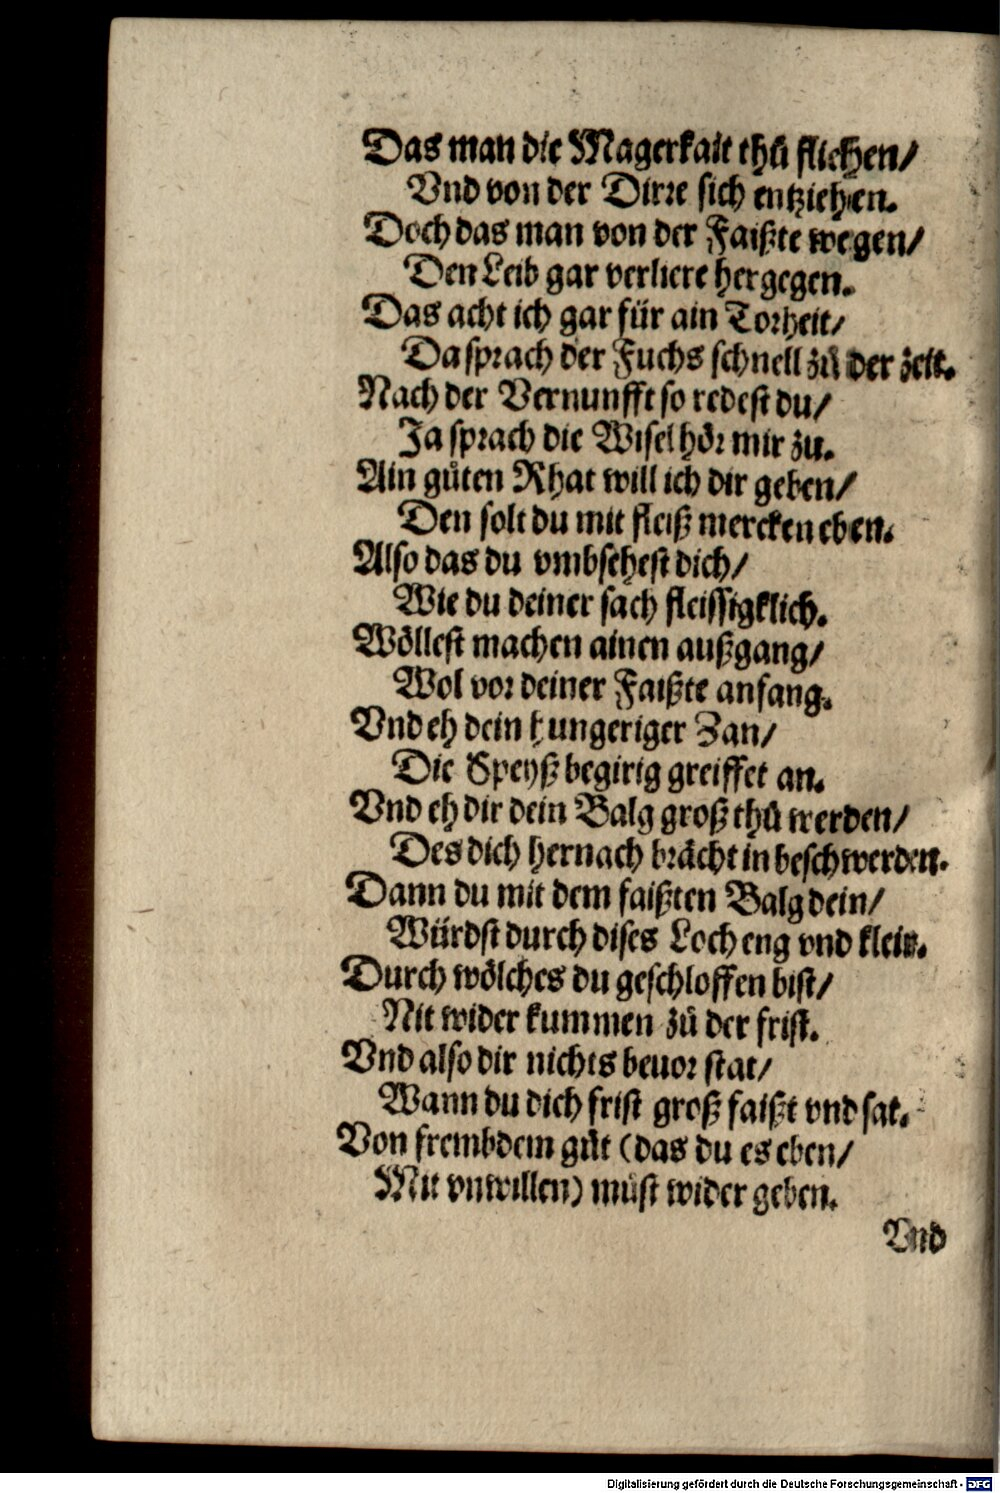 Das man die Magerkait thů fliehen/
Vnd von der Dirre sich entziehen.
Doch das man von der Faißte wegen/
Den Leib gar verliere hergegen.
Das acht ich gar für ain Torheit/
Da sprach der Fuchs schnell zů der zeit.
Nach der Vernunfft so redest du/
Ja sprach die Wisel hör mir zu.
Ain gůten Rhat will ich dir geben/
Den solt du mit fleiß mercken eben.
Also das du vmbsehest dich/
Wie du deiner sach fleissigklich.
Wöllest machen ainen außgang/
Wol vor deiner Faißte anfang.
Vnd eh dein hungeriger Zan/
Die Speyß begirig greiffet an.
Vnd eh dir dein Balg groß thů werden/
Des dich hernach brächt in beschwerden.
Dann du mit dem faißten Balg dein/
Würdst durch dises Loch eng vnd klein.
Durch wölches du geschloffen bist/
Nit wider kummen zů der frist.
Vnd also dir nichts beuor stat/
Wann du dich frist groß faißt vnd sat.
Von frembdem gůt (das du es eben/
Mit vnwillen) můst wider geben.
Vnd
Digitalisierung gefördert durch die Deutsche Forschungsgemeinschaft - DFG